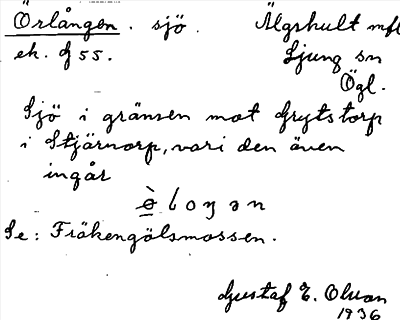 Örlången. sjö. Älgshult mfl
ek. G 55. Ljung sn
Ögl.
Sjö i gränsen mot Grytstorp
i Stjärnorp, vari den även
ingår
Se: Fräkengölsmossen.
Gustaf E. Olson
1936